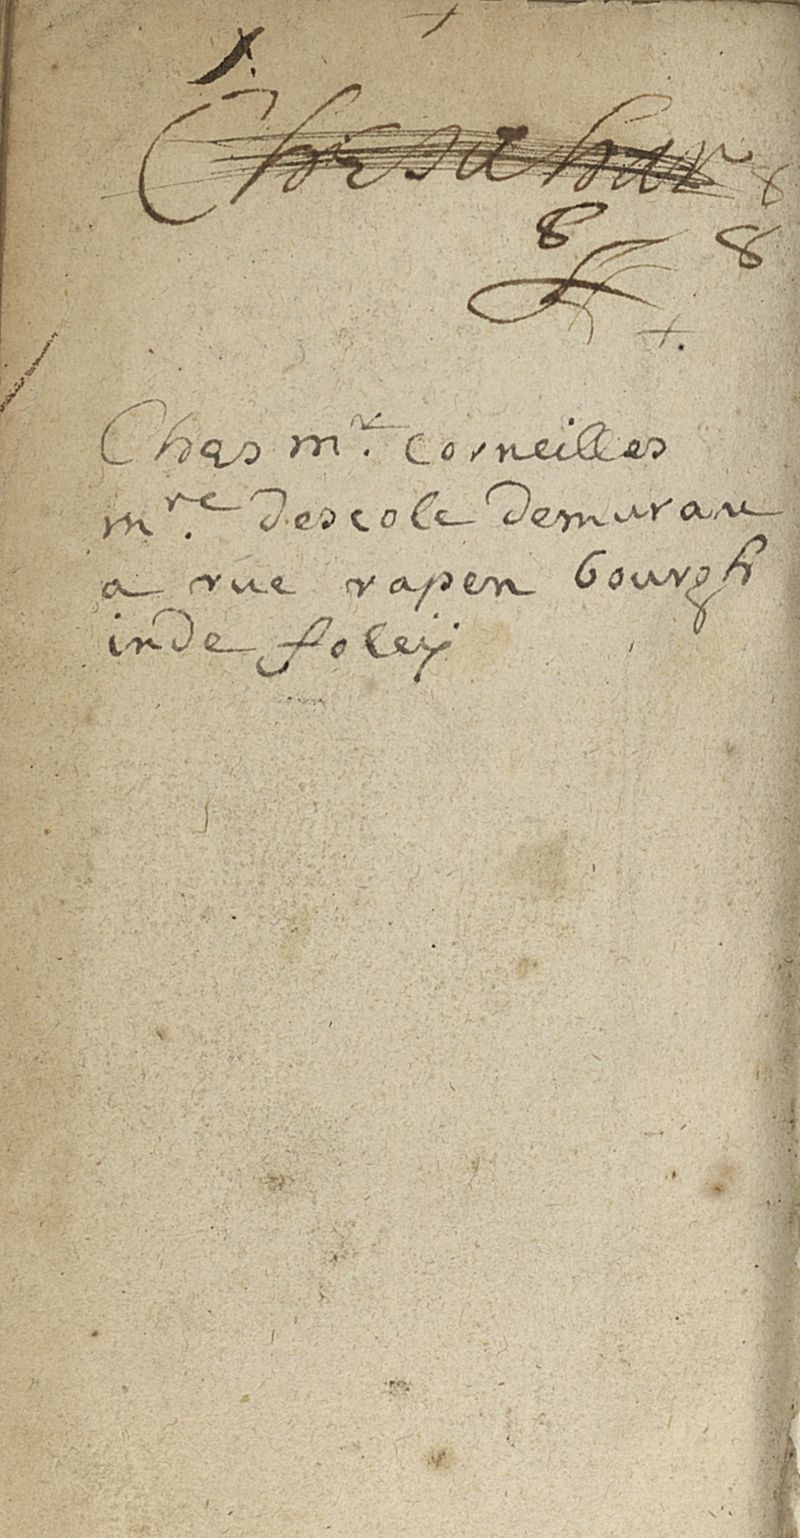 8
8 8
Ches mr. Corneilles
mre. descole demuran
a rue rapen bourgh
inde foleij